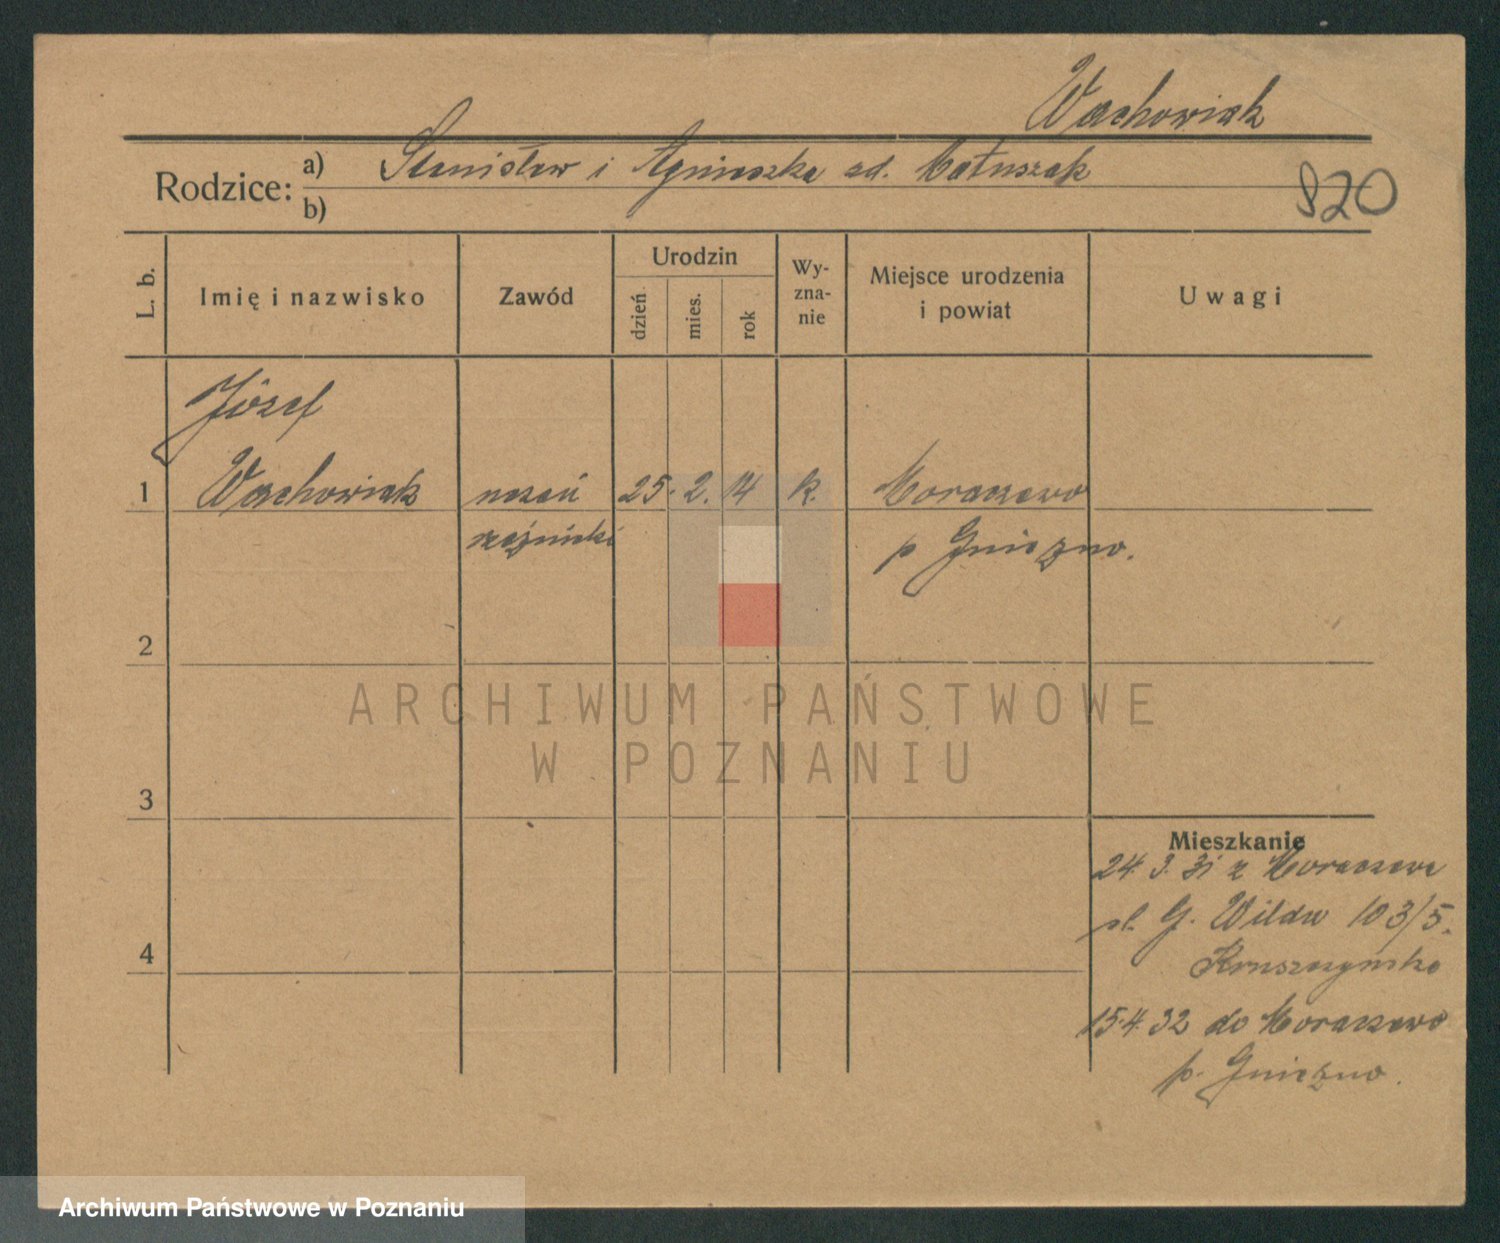 Wachowiak
Rodzice: a) Stanisław i Agnieszka zd. Matuszak
b)
820
L. b.
Imię i nazwisko
Zawód
Urodzin
dzień
mies.
rok
Wy-
zna-
nie
Miejsce urodzenia
i powiat
Uwagi
Józef
1 Wachowiak uczeń 25. 2. 14 k. Moraczewo
rzeźnicki p Gniezno.
2
3
4
Mieszkanie
24. 3. 31 z Moraczewa
G. Wilda 103/5.
15.4.32 do Moraczewo
p. Gniezno.
ARCHIWUM PAŃSTWOWE
W POZNANIU
Archiwum Państwowe w Poznaniu